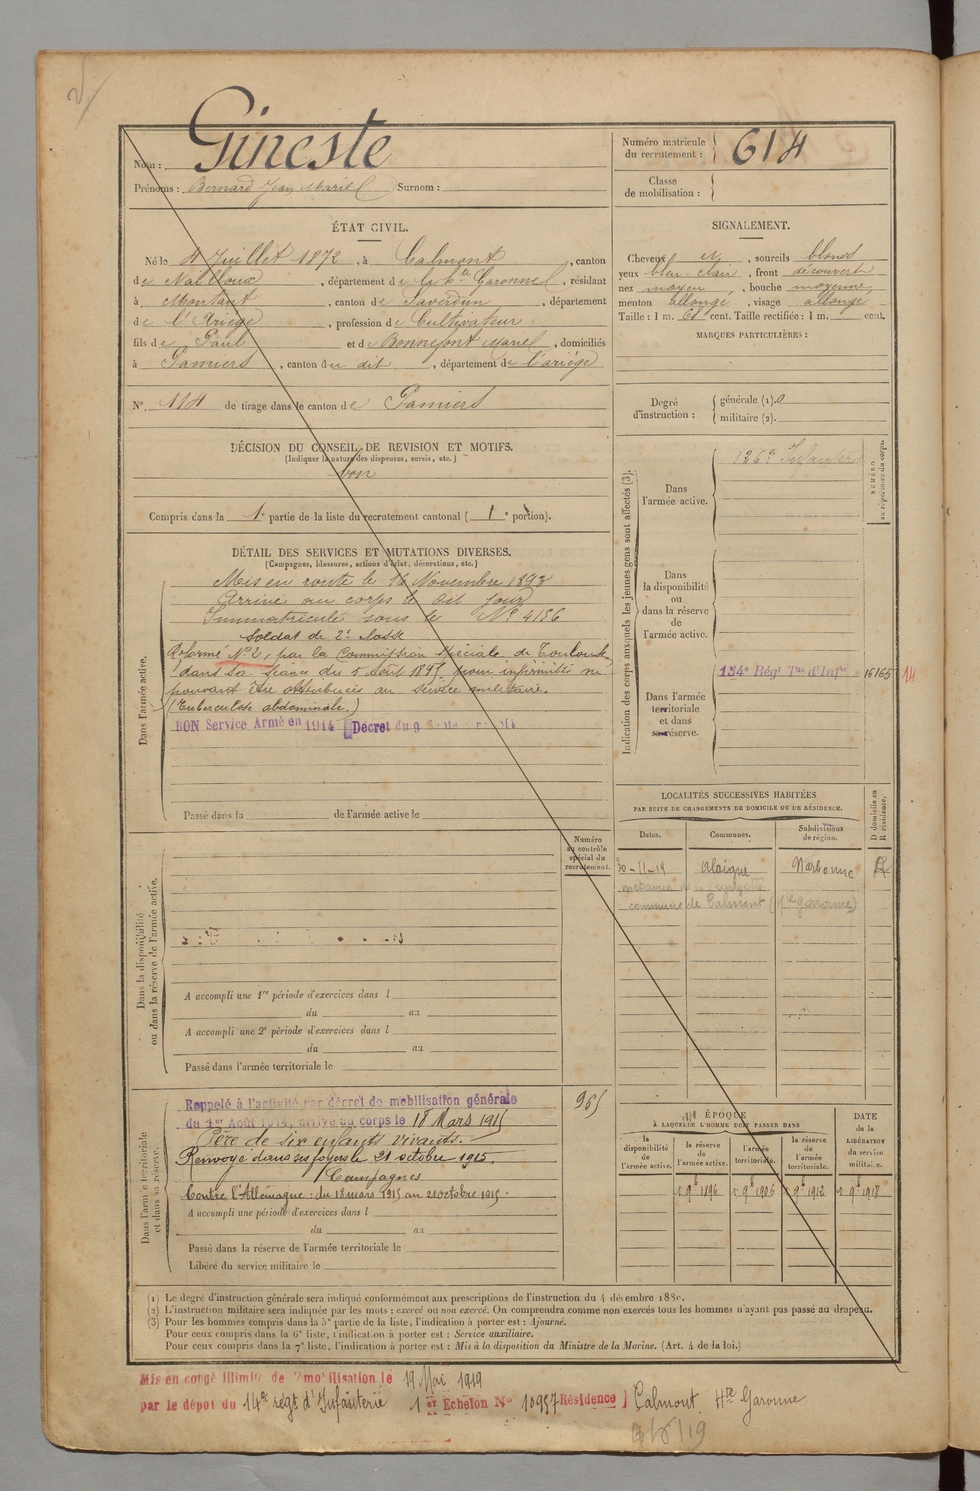 Gineste
Nom :
Prénoms : Bernard Jean Marie Surnom :
Numéro matricule du recrutement : 614
Classe de mobilisation :
ÉTAT CIVIL.
Né le 4 Juillet 1872, à Calmont, canton
de Nailloux, département de la Hte Garonne, résidant
à Montaut, canton de Saverdun, département
de l'Ariège, profession de Cultivateur
fils de Paul et de Bonnefont Marie, domiciliés
à Pamiers, canton du dit, département de l'ariège
N° 114 de tirage dans le canton de Pamiers
SIGNALEMENT.
Cheveux et, sourcils blonds
yeux bleu-clair, front découvert
nez moyen, bouche moyenne,
menton allongé, visage allongé
Taille : 1 m. 68 cent. Taille rectifiée : 1 m. cent.
MARQUES PARTICULIÈRES :
Degré d'instruction : générale (1). 0
militaire (2).
DÉCISION DU CONSEIL DE REVISION ET MOTIFS.
(Indiquer la nature des dispenses, sursis, etc.)
Bon
Compris dans la 1e partie de la liste du recrutement cantonal ( 1e portion).
DÉTAIL DES SERVICES ET MUTATIONS DIVERSES.
(Campagnes, blessures, actions d'éclat, décorations, etc.)
Dans l'armée active.
Mis en route le 16 Novembre 1893
Arrivé au corps le dit jour
Immatriculé sous le N° 4186
Soldat de 2e classe
Réformé N° 2, par la Commission spéciale de Toulouse
dans sa séance du 5 août 1895 pour infirmités ne
pouvant être attribuées au service militaire.
(Tuberculose abdominale.)
BON Service Armé en 1914 Décret du 9
Passé dans la de l'armée active le
Indication des corps auxquels les jeunes gens sont affectés (3).
NUMÉRO au répertoire du corps.
Dans l'armée active.
126e Infanterie
Dans la disponibilité ou dans la réserve de l'armée active.
Dans l'armée territoriale et dans sa réserve.
134e Régt Tal d'Infie 16165 14
LOCALITÉS SUCCESSIVES HABITÉES
PAR SUITE DE CHANGEMENTS DE DOMICILE OU DE RÉSIDENCE.
Dates. Communes. Subdivisions de région. D domicile ou R résidence.
30-11-19 Alaigne Narbonne R
commune de Calmont (Hte garonne)
Dans la disponibilité ou dans la réserve de l'armée active.
Numéro au contrôle spécial du recrutement.
A accompli une 1re période d'exercices dans l
du au
A accompli une 2e période d'exercices dans l
du au
Passé dans l'armée territoriale le
Dans l'armée territoriale et dans sa réserve.
Rappelé à l'activité par décret de mobilisation générale
du 1er Août 1914, arrivé au corps le 18 Mars 1915
965
Père de six enfants vivants.
Renvoyé dans ses foyers le 21 octobre 1915.
Campagnes
Contre l'Allemagne : du 18 mars 1915 au 21 octobre 1915.
A accompli une période d'exercices dans l
du au
Passé dans la réserve de l'armée territoriale le
Libéré du service militaire le
ÉPOQUE
À LAQUELLE L'HOMME DOIT PASSER DANS
la disponibilité de l'armée active. la réserve de l'armée active. l'armée territoriale. la réserve de l'armée territoriale.
DATE de la LIBÉRATION du service militaire.
1er 9bre 1896 1er 9bre 1906 1er 9bre 1912 1er 9bre 1918
(1) Le degré d'instruction générale sera indiqué conformément aux prescriptions de l'instruction du 4 décembre 1889.
(2) L'instruction militaire sera indiquée par les mots : exercé ou non exercé. On comprendra comme non exercés tous les hommes n'ayant pas passé au drapeau.
(3) Pour les hommes compris dans la 5e partie de la liste, l'indication à porter est : Ajourné.
Pour ceux compris dans la 6e liste, l'indication à porter est : Service auxiliaire.
Pour ceux compris dans la 7e liste, l'indication à porter est : Mis à la disposition du Ministre de la Marine. (Art. 4 de la loi.)
Mis en congé illimité de démobilisation le 19 Mai 1919
par le dépôt du 14e régt d'Infanterie 1er Echelon N° 10957 Résidence Calmont. Hte Garonne